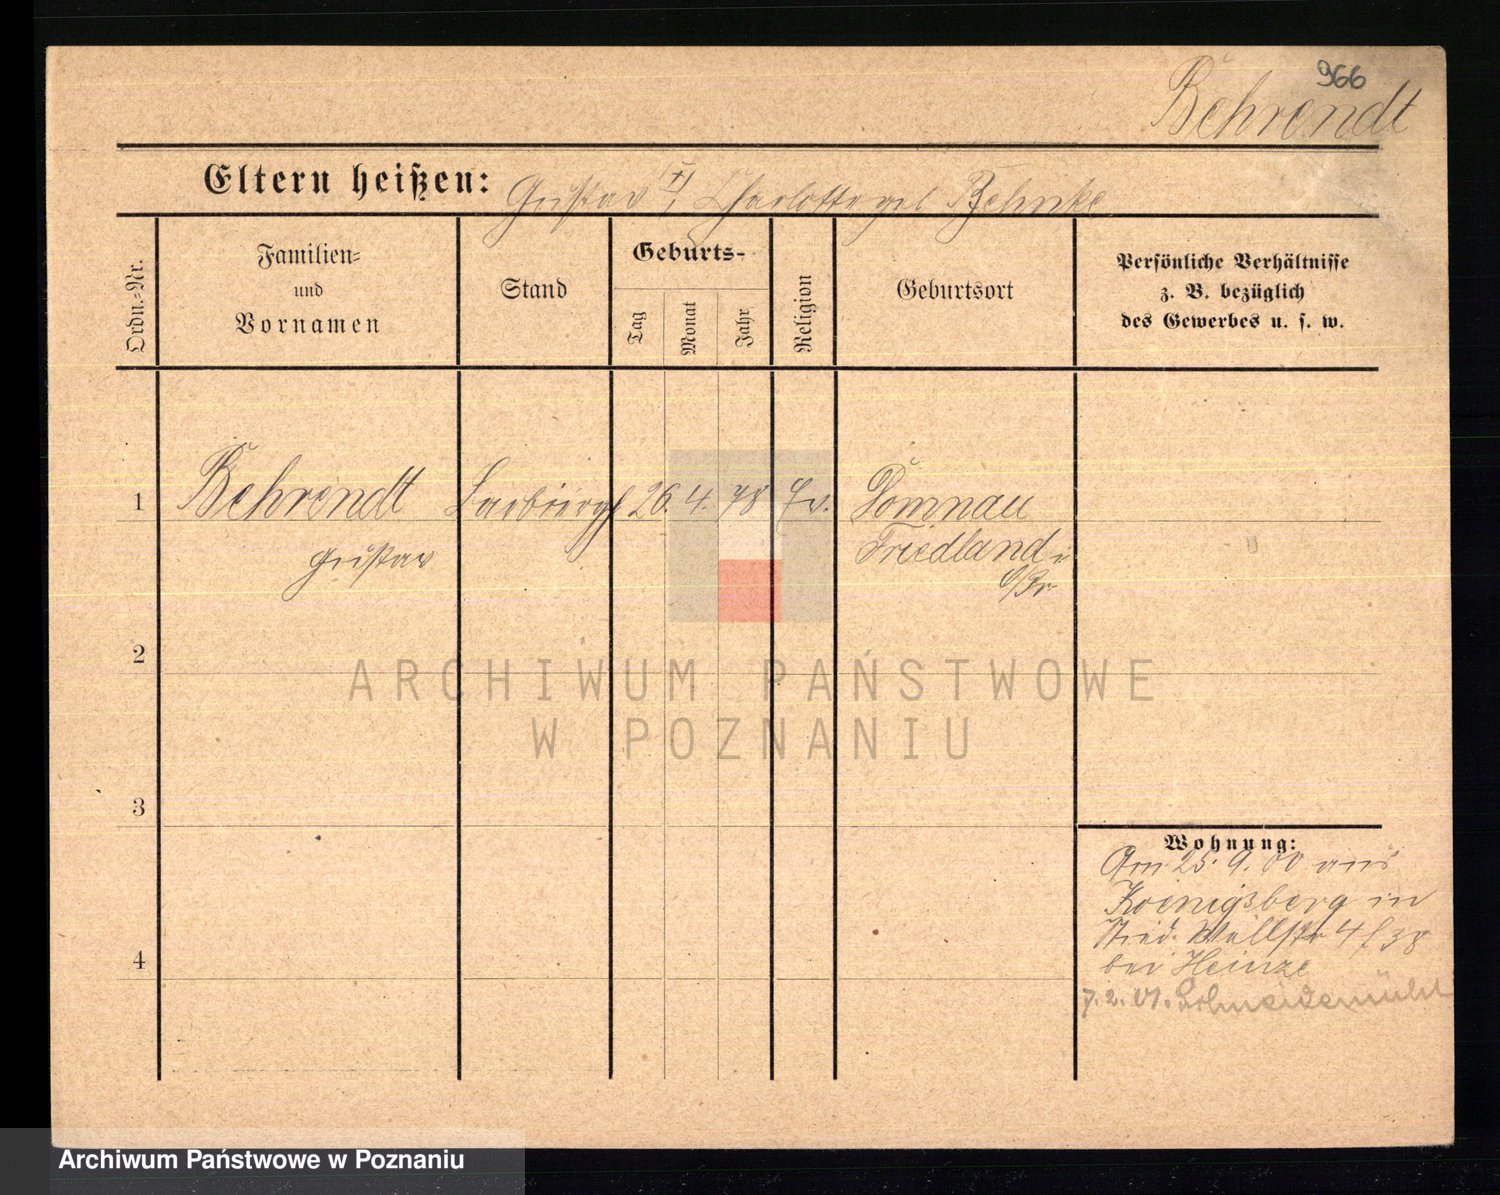 966
Behrendt
Eltern heißen: Gustav (†), Charlotte geb Behnke
Ordn.-Nr.
Familien-
und
Vornamen
Stand
Geburts-
Tag
Monat
Jahr
Religion
Geburtsort
Persönliche Verhältnisse
z. B. bezüglich
des Gewerbes u. s. w.
1
Behrendt 26. 4. 78 Ev. Domnau
Gustav Friedland i
O/Pr
2
3
4
Wohnung:
Am 25. 9. 00 aus
Koenigsberg in
Wallstr 4
bei Heinze
7. 2. 01. Schneidemühl
ARCHIWUM PAŃSTWOWE
W POZNANIU
Archiwum Państwowe w Poznaniu